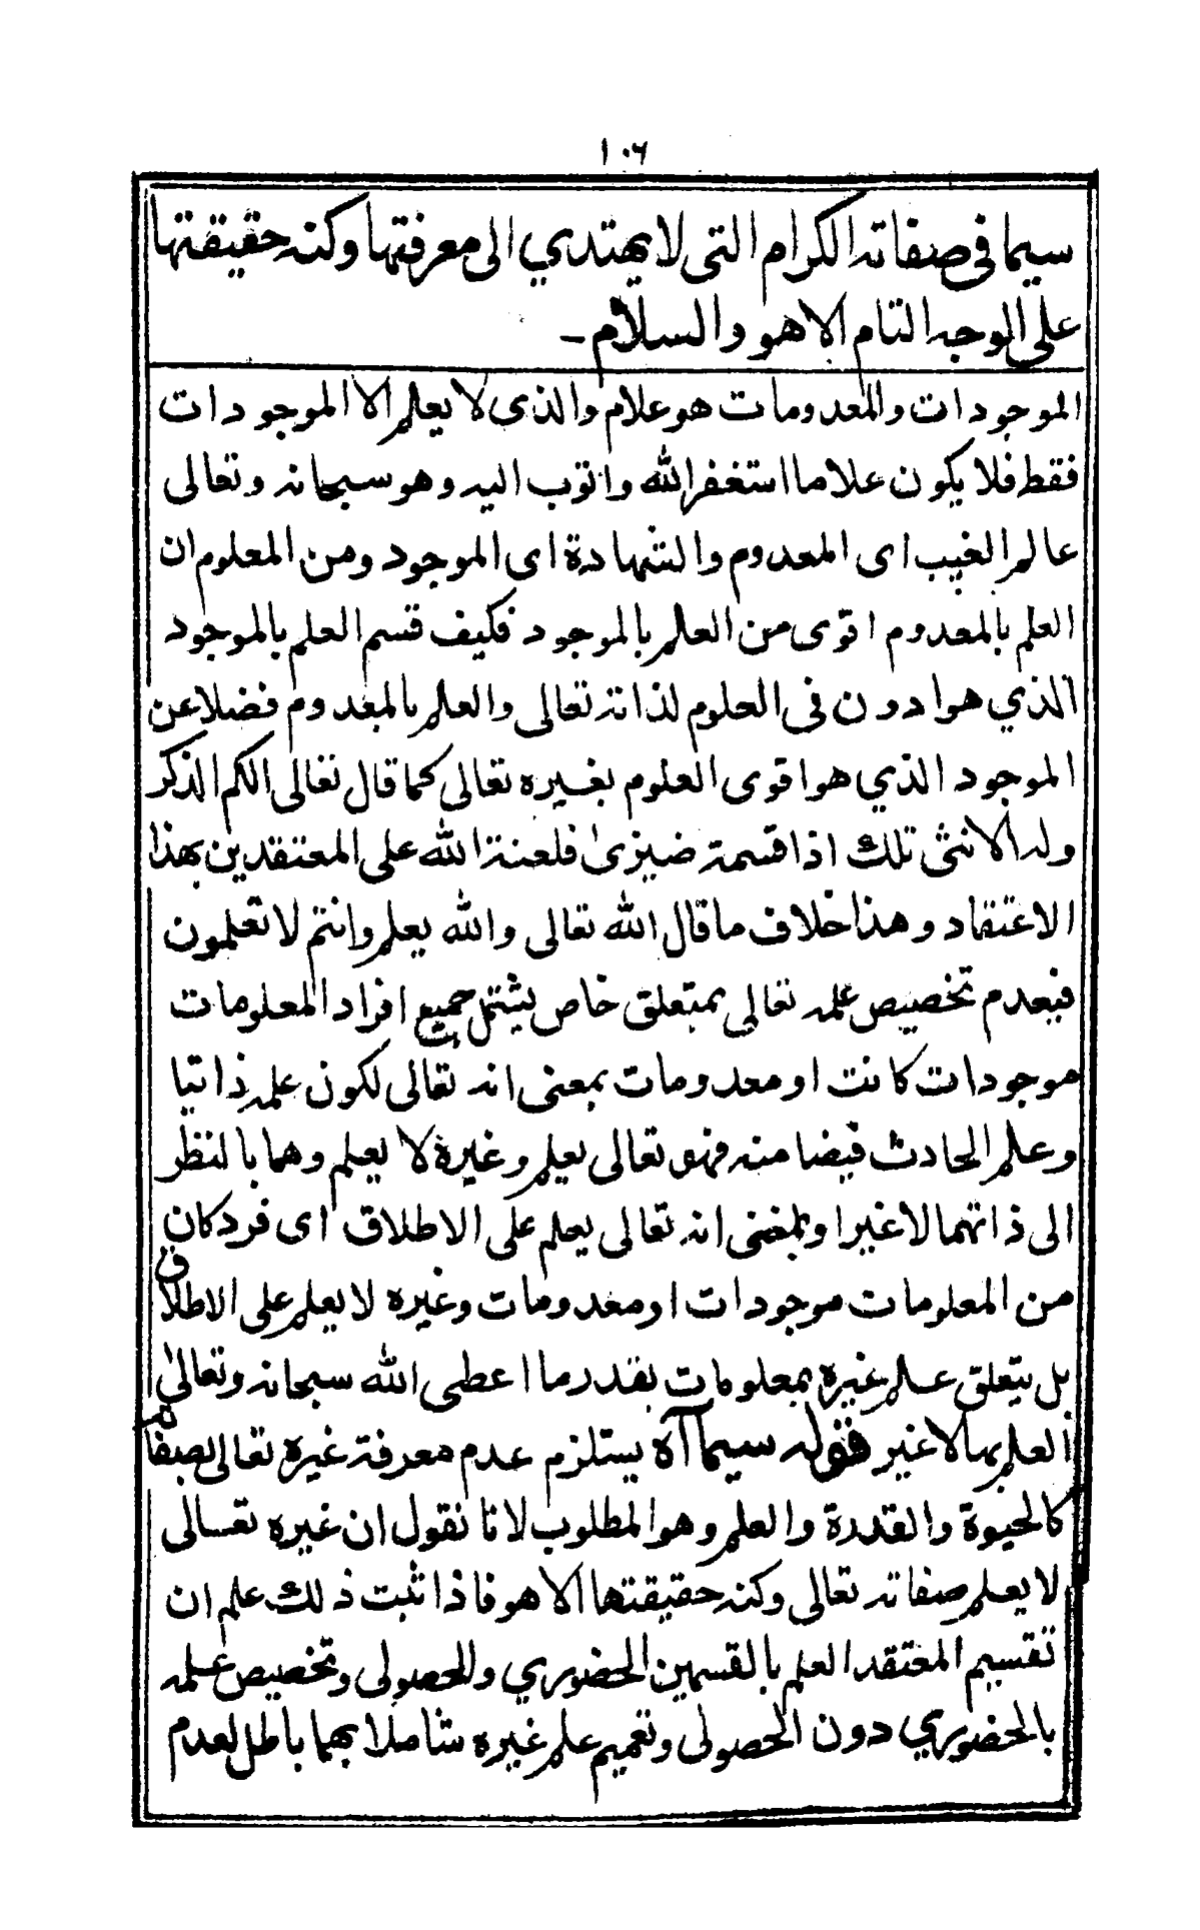 ١٠٦
سيما في صفاته الكرام التى لا يهتدي الى معرفتها وكنه حقيقتها
على الوجه التام الا هو والسلام ـ
الموجودات والمعدومات هو علام والذى لا يعلم الا الموجودات
فقط فلا يكون علاما استغفر الله واتوب اليه وهو سبحانه وتعالى
عالم الغيب اى المعدوم والشهادة اى الموجود ومن المعلوم ان
العلم بالمعدوم اقوى من العلم بالموجود فكيف قسم العلم بالموجود
الذي هو ادون فى العلوم لذاته تعالى والعلم بالمعدوم فضلا عن
الموجود الذي هو اقوى العلوم بغيره تعالى كما قال تعالى الكم الذكر
وله الانثى تلك اذا قسمة ضيزىٰ فلعنة الله على المعتقدين بهذا
الاعتقاد وهذا خلاف ما قال الله تعالى والله يعلم وانتم لا تعلمون
فبعدم تخصيص علمه تعالى بمتعلق خاص يشتمل جميع افراد المعلومات
موجودات كانت او معدومات بمعنى انه تعالى لكون علمه ذاتيا
وعلم الحادث فيضا منه فهو تعالى يعلم وغيره لا يعلم وهما بالنظر
الى ذاتهما لا غير او بمعنى انه تعالى يعلم على الاطلاق اى فرد كان
من المعلومات موجودات او معدومات وغيره لا يعلم على الاطلاق
بل يتعلق علم غيره بمعلومات بقدر ما اعطى الله سبحانه وتعالىٰ
العلم بها لا غير قوله سيما آه يستلزم عدم معرفة غيره تعالى لصفاته
كالحيوة والقدرة والعلم وهو المطلوب لانا نقول ان غيره تعالى
لا يعلم صفاته تعالى وكنه حقيقتها الا هو فاذا ثبت ذلك علم ان
تقسيم المعتقد العلم بالقسمين الحضوري والحصولى وتخصيص علمه
بالحضوري دون الحصولى وتعميم علم غيره شاملا بهما باطل لعدم